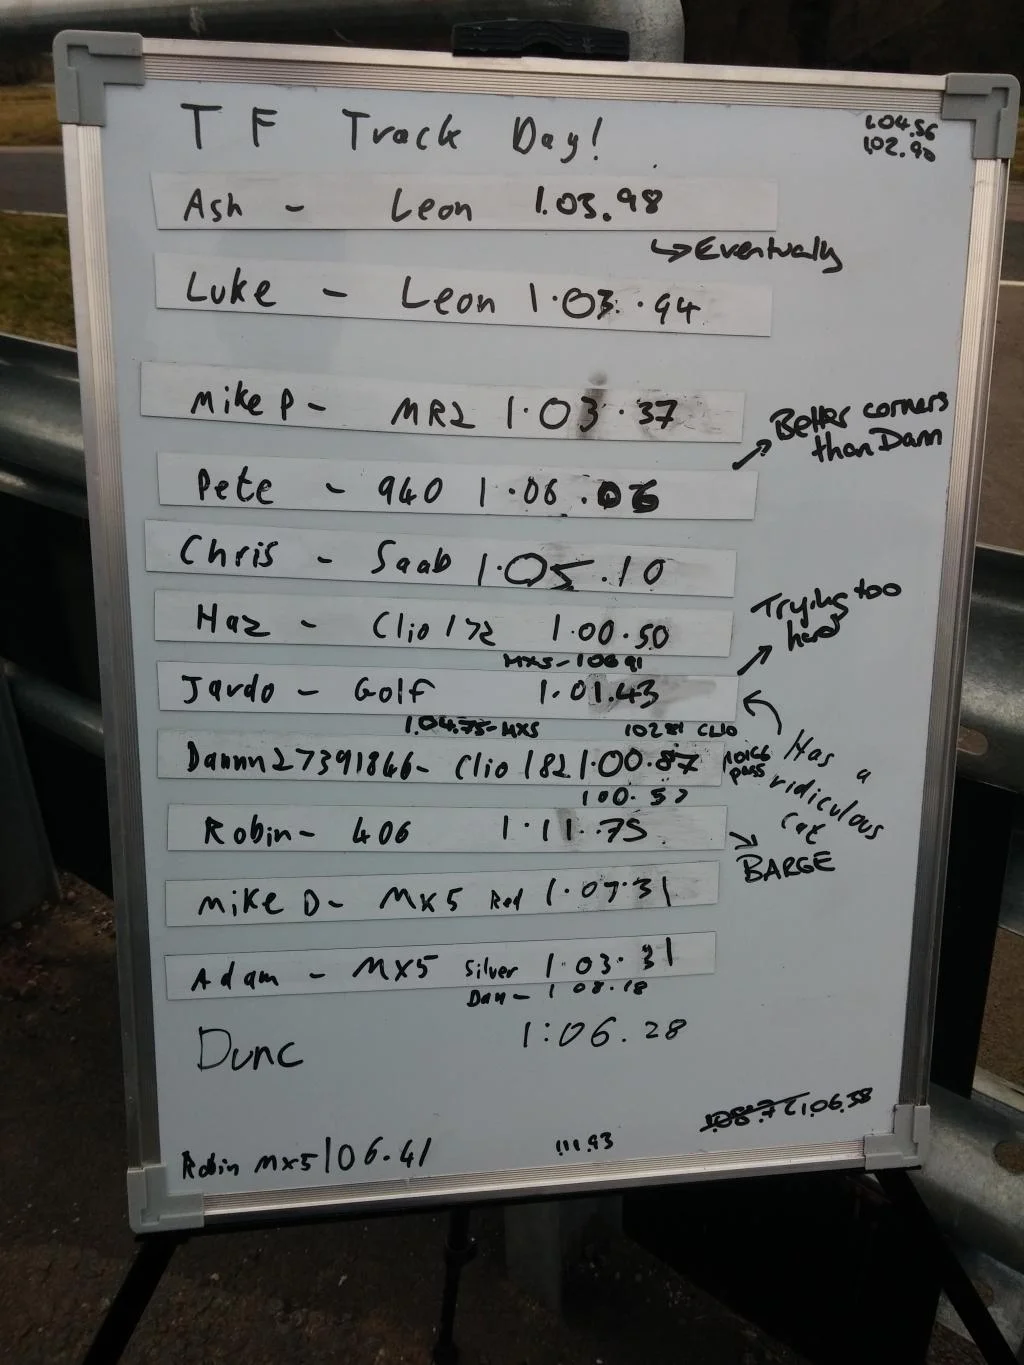 T F Track Day!
1.04.56
1.02.90
Ash - Leon 1.03.98
↳ Eventually
Luke - Leon 1.03.94
Mike P - MR2 1.03.37
Better corners
than Dann
Pete - 940 1.06.06
Chris - Saab 1.05.10
Trying too
hard
Haz - Clio 172 1.00.50
MX5 - 106 91
Jardo - Golf 1.01.43
1.04.75 - MX5
CLIO
Has a
ridiculous
cat
Dannn27391866 - Clio 182 1.00.87
pass
Robin - 406 1.11.75
BARGE
Mike D - MX5 Red 1.07.31
Adam - MX5 Silver 1.03.31
Dan - 1 08.18
Dunc 1:06.28
1.06.38
Robin MX5 106.41
1.11.93